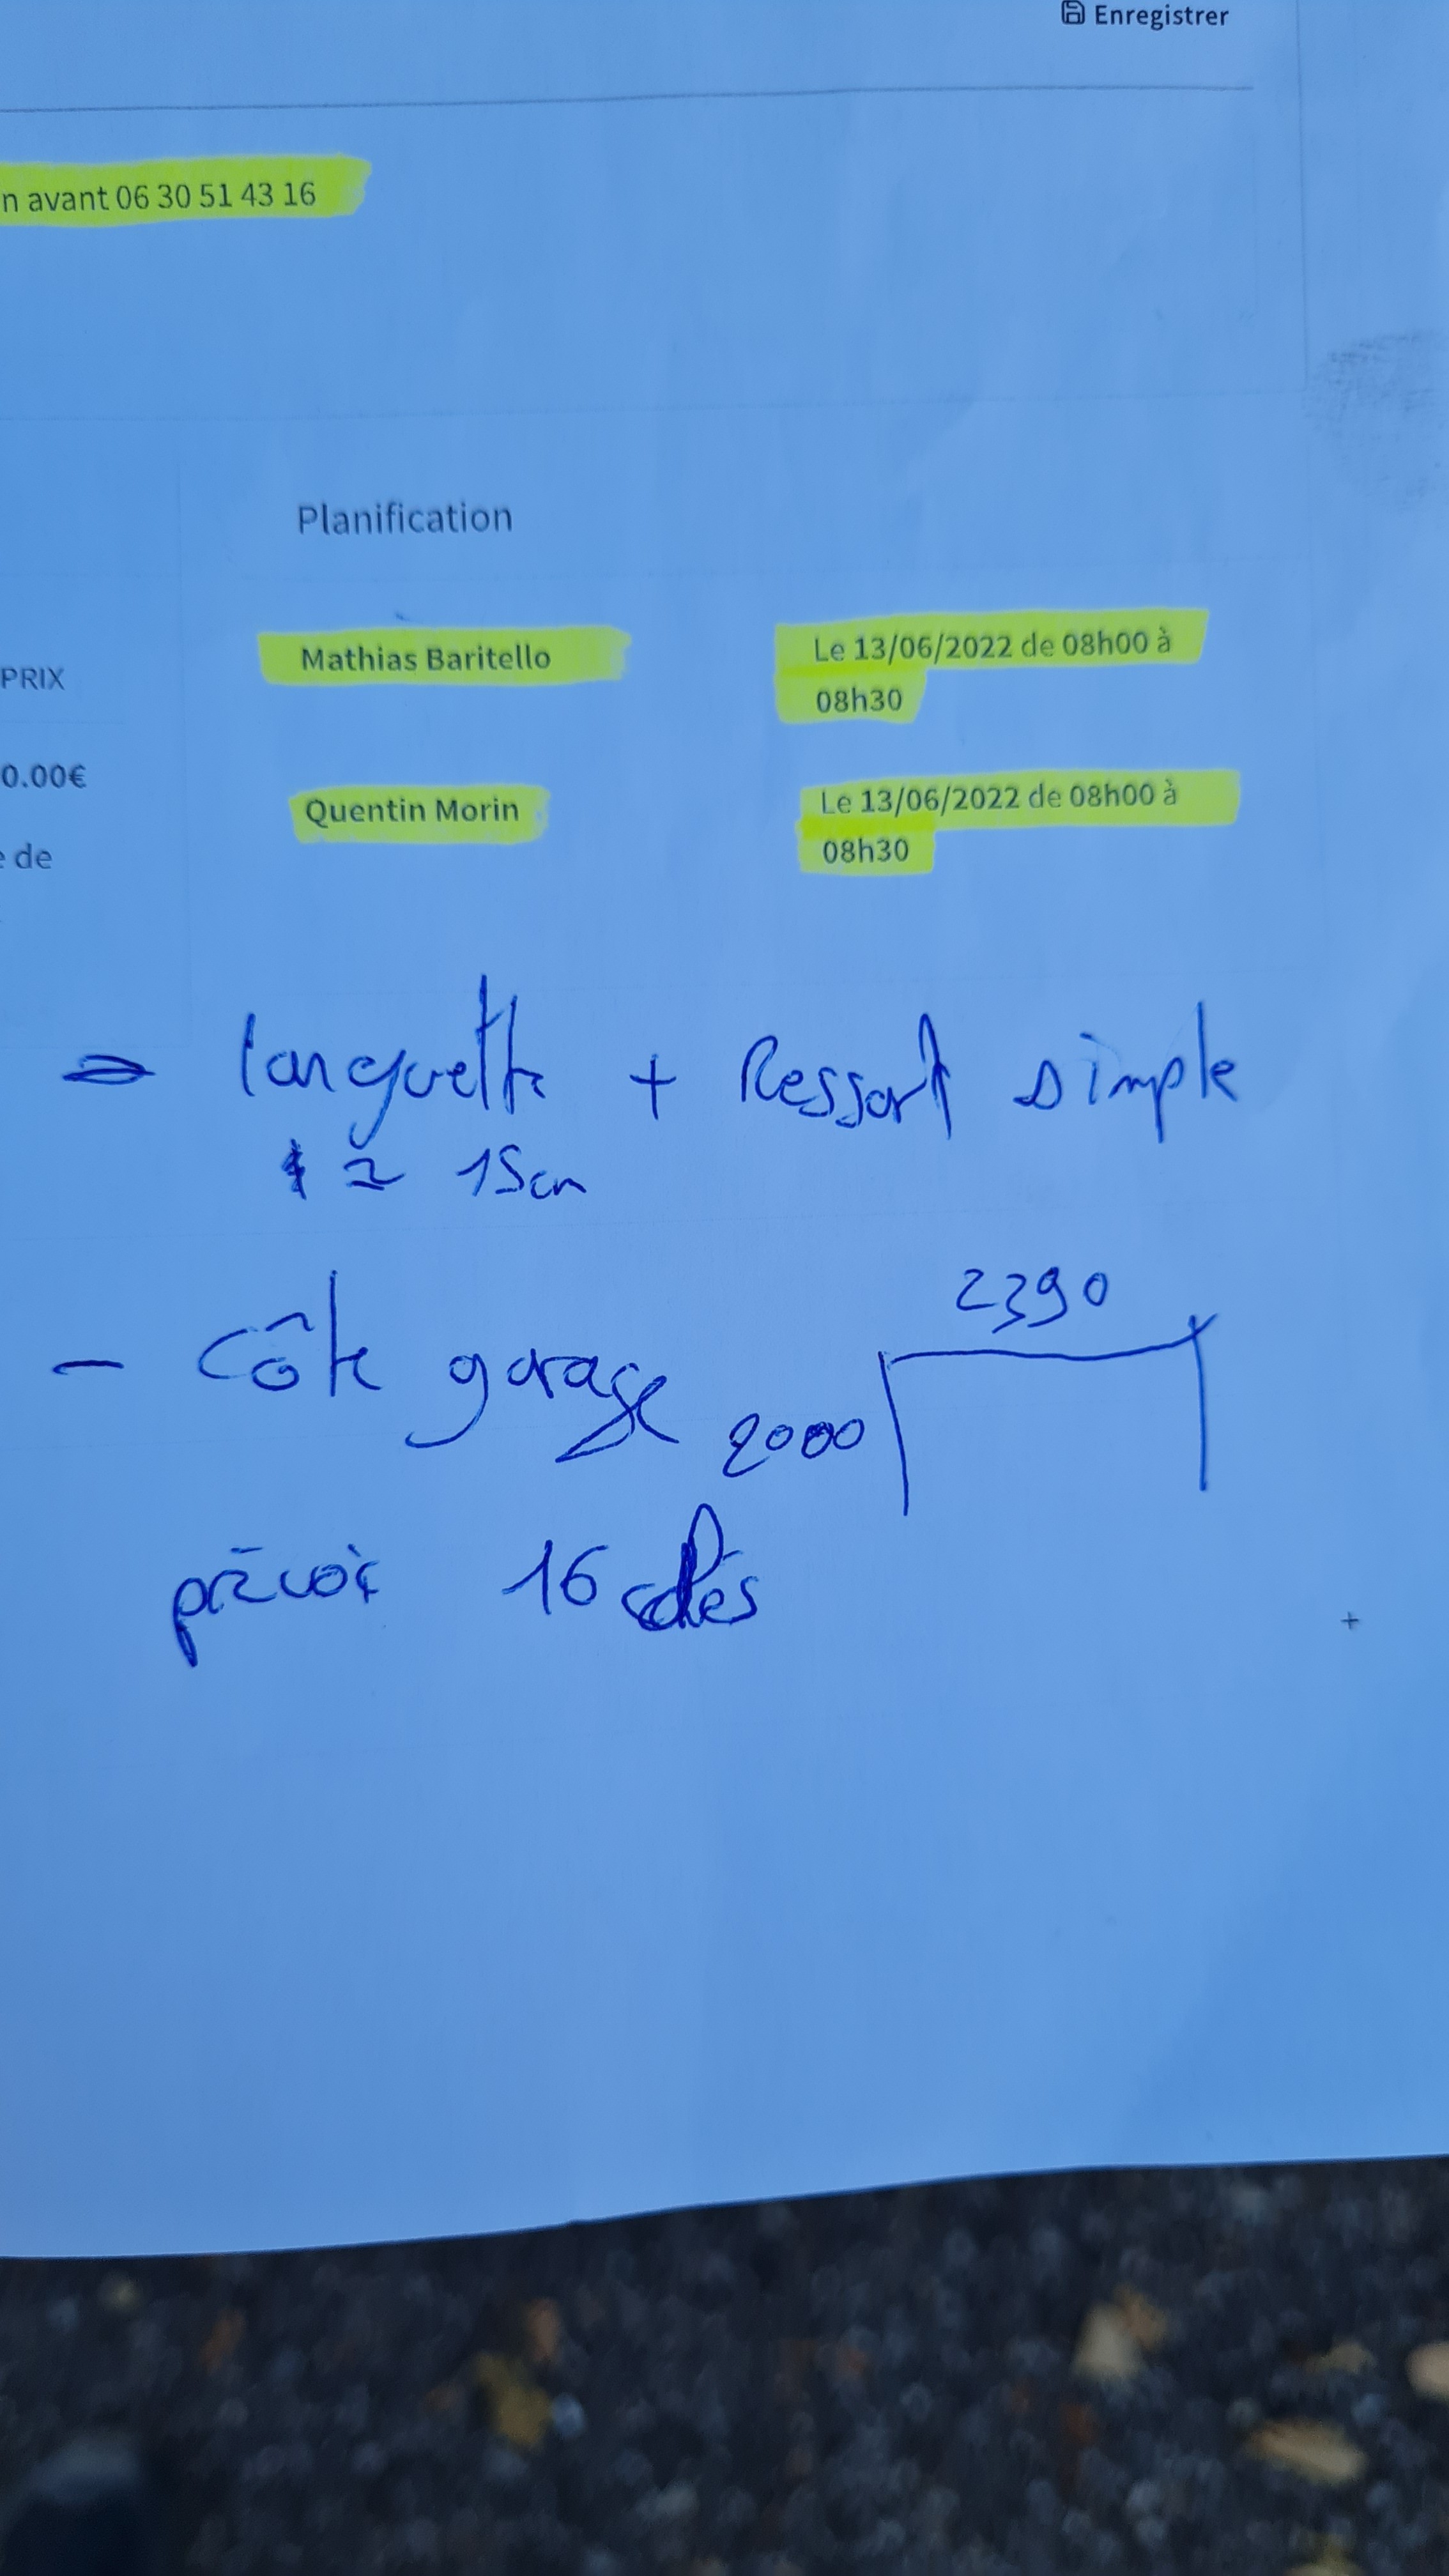 Enregistrer
n avant 06 30 51 43 16
Planification
PRIX
Mathias Baritello
Le 13/06/2022 de 08h00 à
08h30
0.00€
Quentin Morin
Le 13/06/2022 de 08h00 à
08h30
e de
⇒ languette + Ressort simple
2 15cm
- Côte garage
2390
2000
prévoir 16 clés